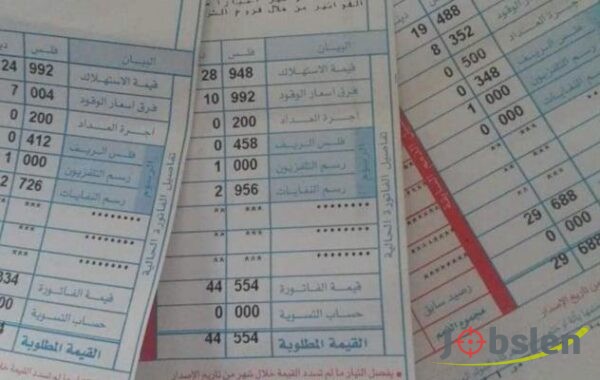 الفواتير من خلال فروع
البيان فلس
قيمة الاستهلاك 992 24
فرق اسعار الوقود 004 7
أجرة العداد 200 0
فلس الريف 412 0
رسم التلفزيون 000 1
رسم النفايات 726 2
الرسوم
تفاصيل الفاتورة الحالية
قيمة الفاتورة 334
حساب التسوية 000
القيمة المطلوبة
البيان فلس
قيمة الاستهلاك 948 28
فرق اسعار الوقود 992 10
أجرة العداد 200 0
فلس الريف 458 0
رسم التلفزيون 000 1
رسم النفايات 956 2
الرسوم
تفاصيل الفاتورة الحالية
قيمة الفاتورة 554 44
حساب التسوية 000 0
القيمة المطلوبة 554 44
يفصل التيار ما لم تسدد القيمة خلال شهر من تاريخ الاصدار
488 19
352 8
500 0
348 0
000 1
000 0
688 29
000 0
688 29
رصيد سابق
من تاريخ الاصدار
Jobslen